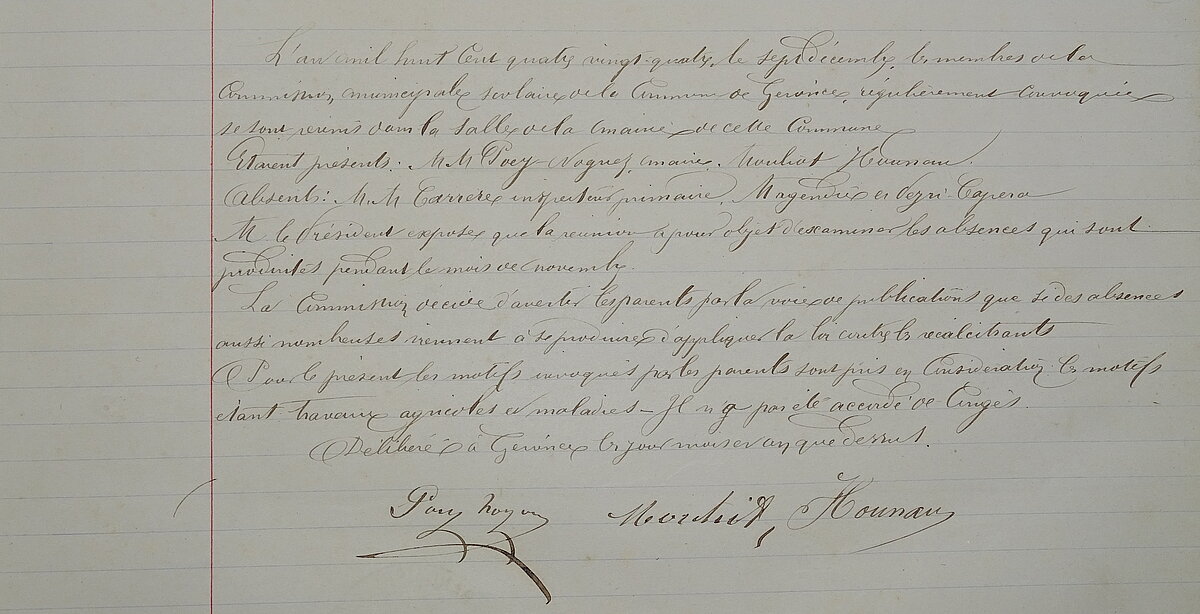 L'an mil huit Cent quatre vingt-quatre, le sept décembre, les membres de la
Commission, municipale scolaire de la Commune de Géronce, régulièrement convoquée
se sont réunis dans la salle de la mairie de cette Commune
Étaient présents: M M Poey-Noguez, maire, Mouliot Hounau.
Absents: M. M Carrere inspecteur primaire, Magendie et Capera
M. le Président expose que la réunion a pour objet d'examiner les absences qui sont
produites pendant le mois de novembre.
La Commission décide d'avertir les parents par la voie de publications que si des absences
aussi nombreuses viennent à se produire d'appliquer la loi contre les récalcitrants
Pour le présent les motifs invoqués par les parents sont pris en Considération. Les motifs
étant travaux agricoles et maladies - Il n'a pas été accordé de Congés.
Délibéré à Géronce les jour mois et an que dessus.
Poey Noguez Hounau